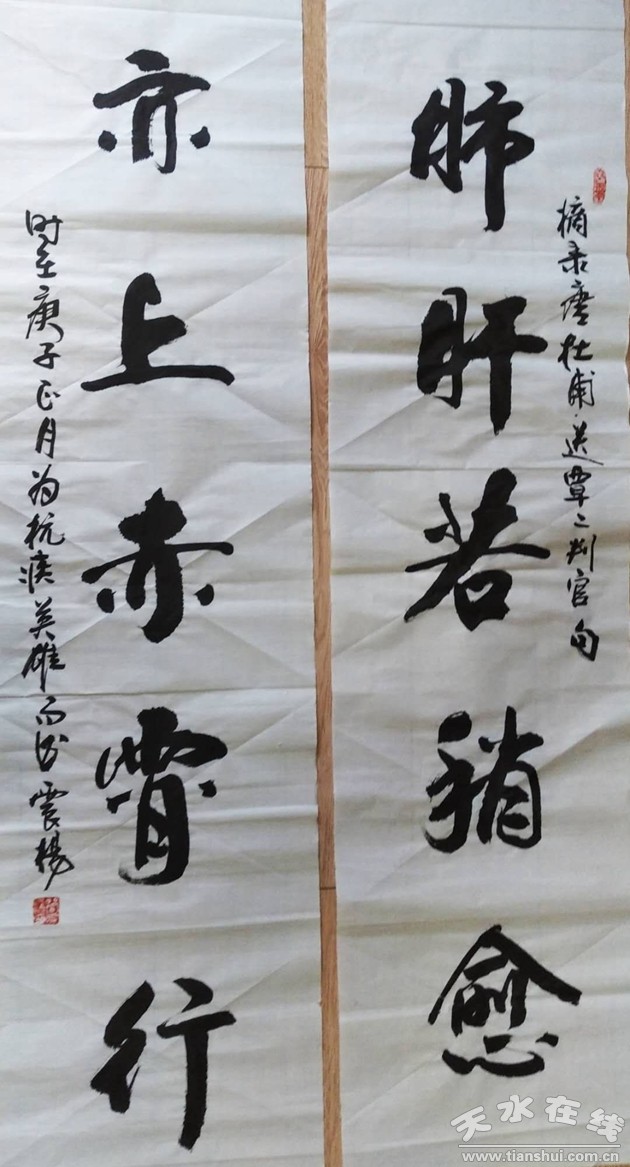 摘录唐杜甫·送覃二判官句
肺肝若稍愈
亦上赤霄行
时在庚子正月为抗疫英雄而书震杨
天水在线
www.tianshui.com.cn